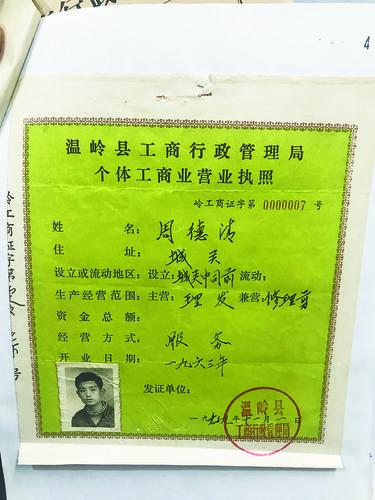 4
温岭县工商行政管理局
个体工商业营业执照
岭工商证字第 0000007 号
姓名: 周德清
住址: 城关
设立或流动地区: 设立: 城关中司前 流动:
生产经营范围: 主营: 理发 兼营: 修理剪
资金总额:
经营方式: 服务
开业日期: 一九六三年
发证单位:
一九七九年十一月一日
温岭县
工商行政管理局
岭工商证字第
号